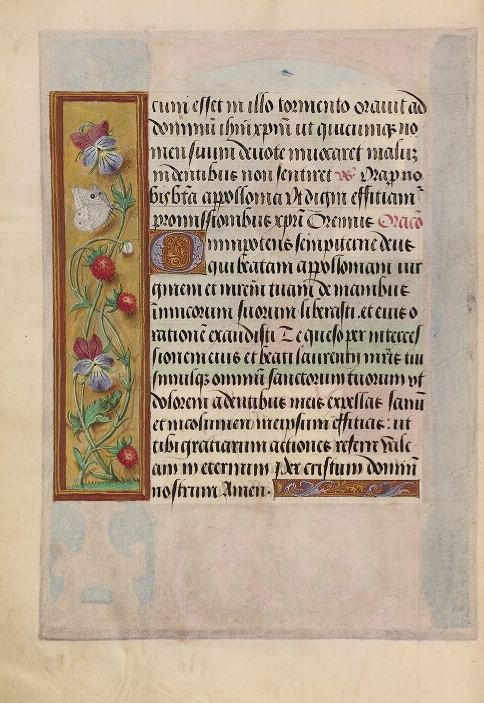 cum esset in illo tormento orauit ad
dominū ihm̄ xpm̄ ut quicumqȝ no
men suum deuote inuocaret malūȝ
in dentibus non sentiret vs̄ Ora p no
bis bt̄a appollonia Vt digni effitiam
promissionibus xpr̄i Oremus Oracō
Omnipotens sempiterne deus
qui beatam appolloniam uir
ginem et mr̄em tuam de manibus
inimicorum suorum liberasti .et eius o
rationē exaudisti Te queso per interces
sionem eius et beati laurentij mr̄is tui
simulqȝ omniū sanctorum tuorum ut
dolorem a dentibus meis expellas sanū
et incolumen me ipsum effitias : ut
tibi gratiarum actiones referre vale
am in eternum per cristum dominū
nostrum Amen.